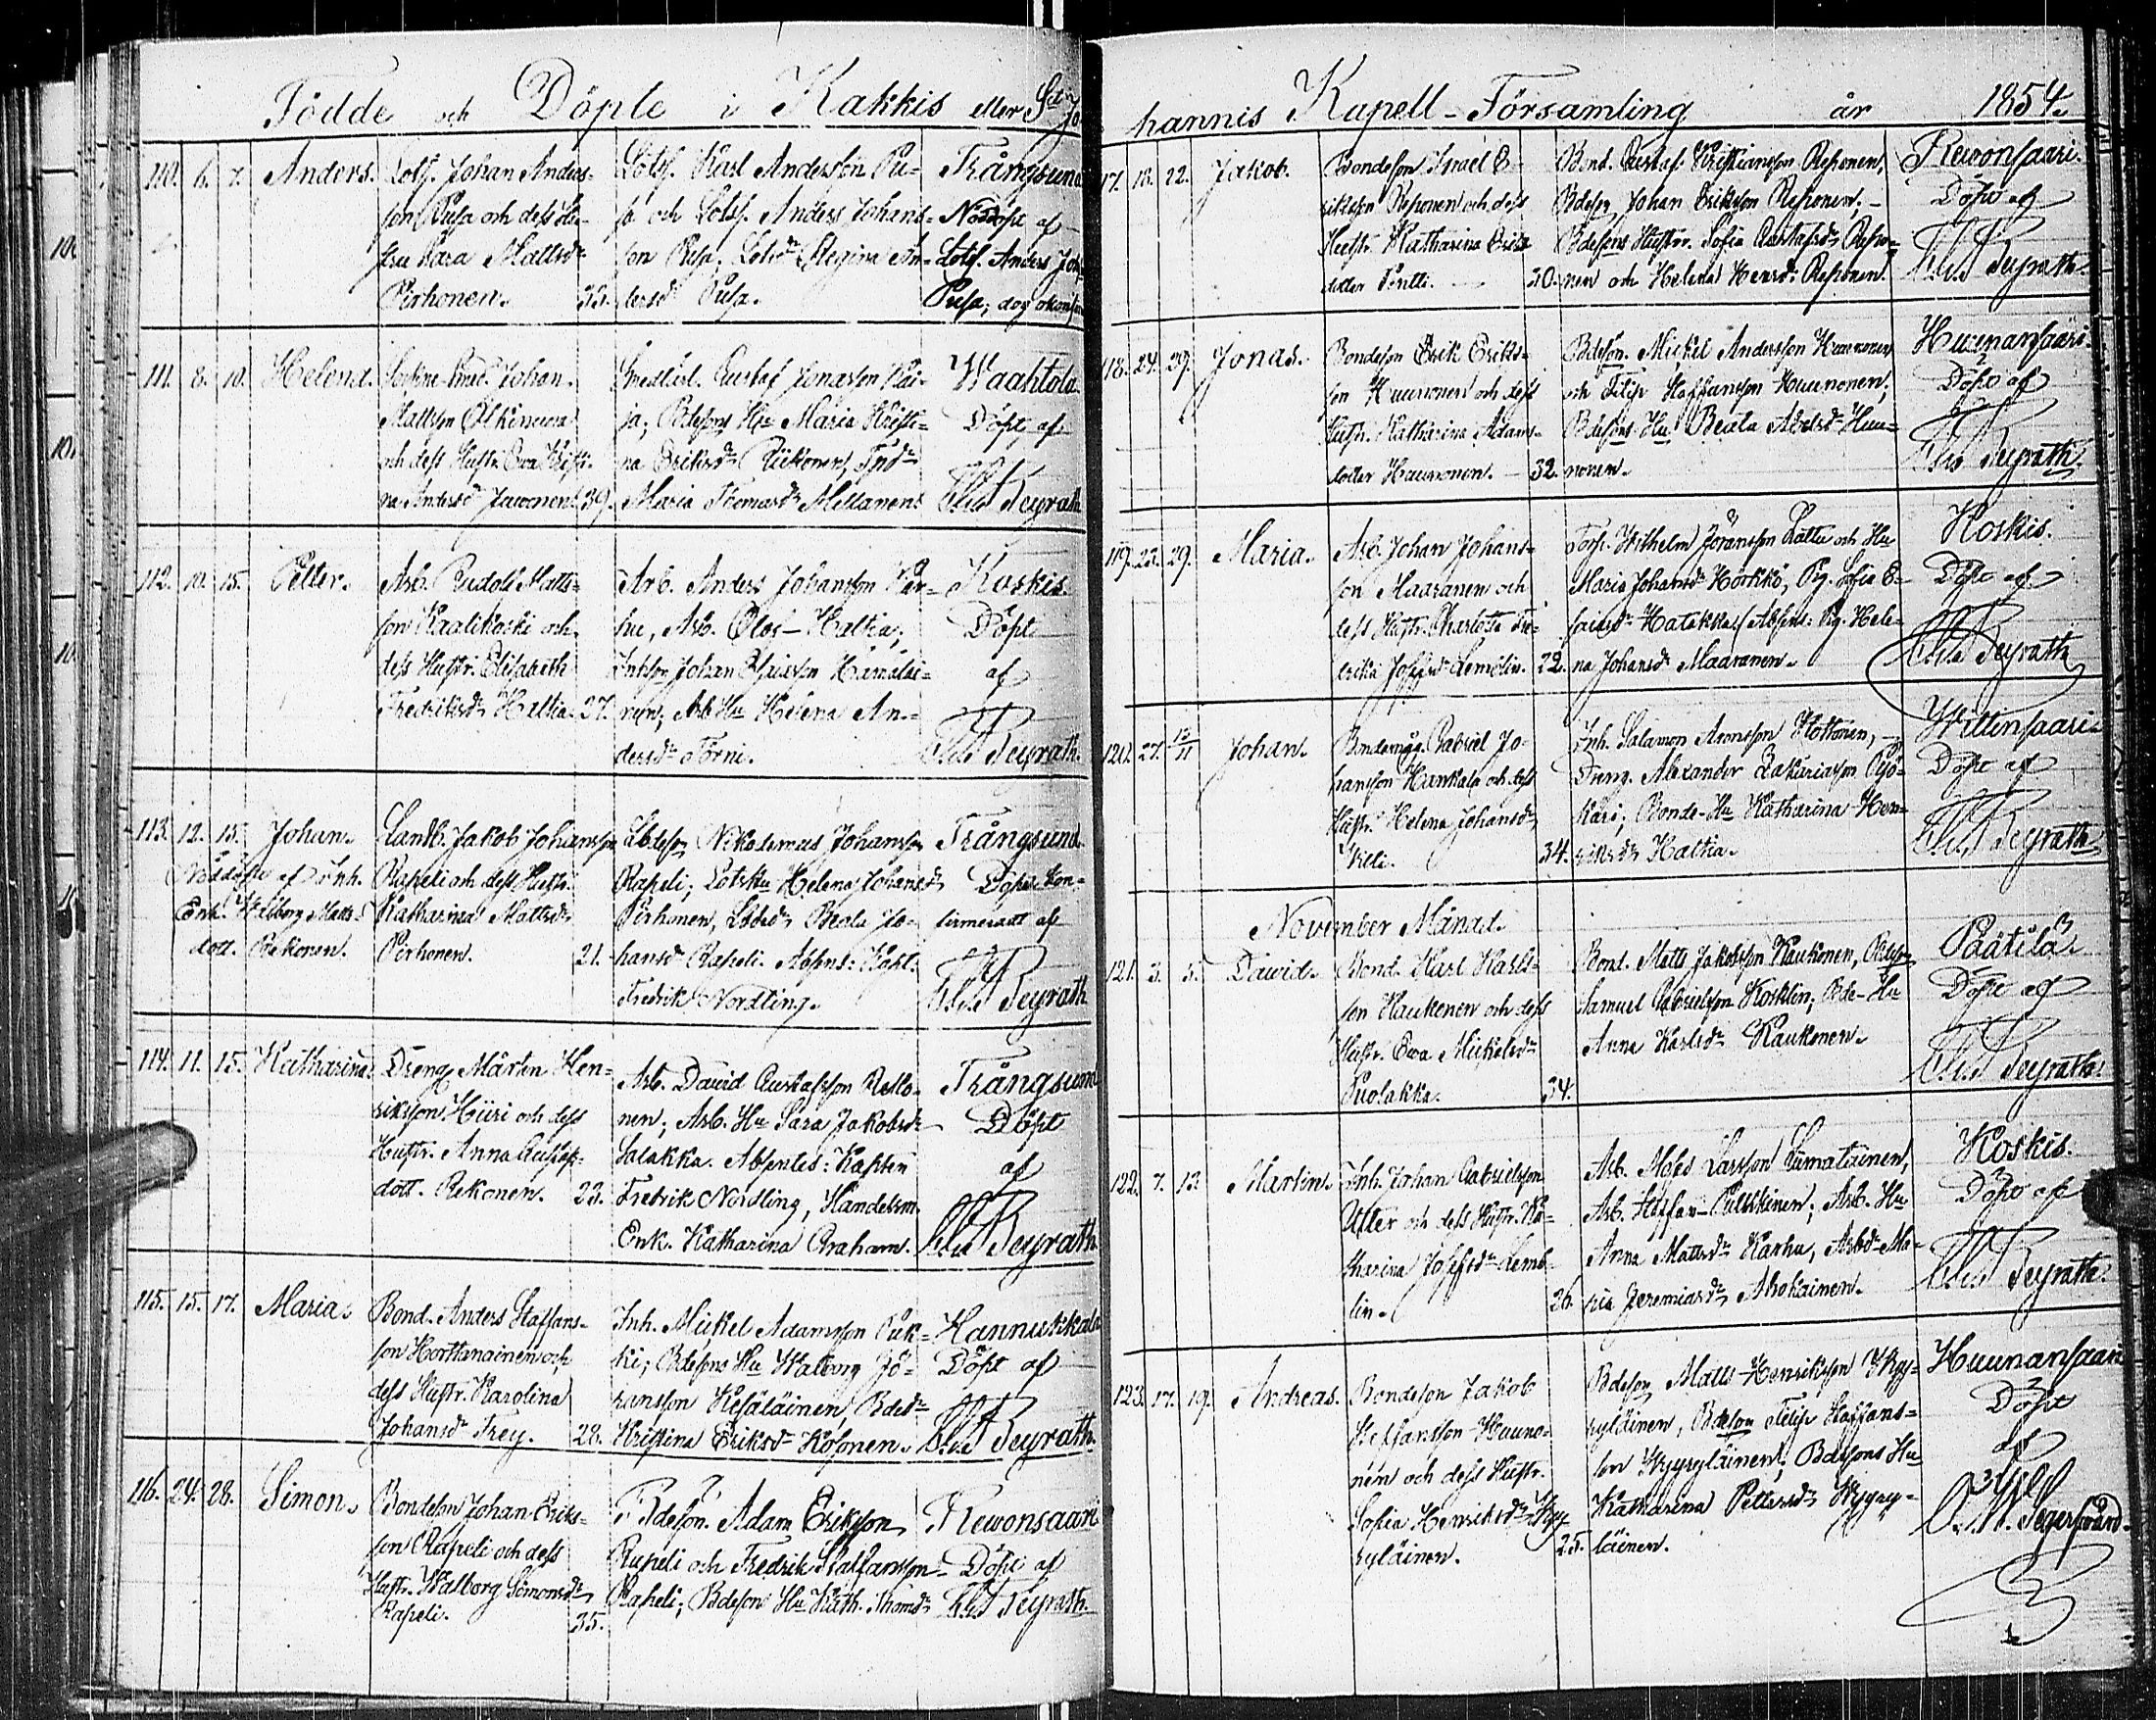 Födde och Döpte i Kakkis eller S:t Jo
110. 6. 7. Anders.
Lots. Johan Anders-
son Pusa och dess Hu-
stru Sara Mattsdr
Pirhonen. 33.
Lots. Karl Andersson Pu-
sa och Lots. Anders Johans-
son Pusa. Lotsdr Regina An-
dersdr Pusa.
Trångsund
Nöddöpt af
Lots. Anders Joh.
Pusa; dog
111. 8. 10. Helena.
Johan
Mattsson
och dess Hustr. Ewa Kristi-
na Andersdr 39.
Gustaf Jonasson Kai-
ja; Bdesons Hu Maria Kristi-
na Eriksdr
Maria Thomasdr
Waahtola
Döpt af
Reyrath
112. 10. 15. Petter.
Arb. Rudolf Matts-
son Kaalikoski och
dess Hustr. Elisabeth
Fredriksdr Haltia. 27.
Arb. Anders Johansson Kar-
hu, Arb. Olof Haltia;
Johan
Arb Hu Helena An-
dersdr Törni.
Koskis.
Döpt
af
Reyrath.
113. 12. 15. Johan.
Nöddöpt af Inh.
Enk. Walborg Matts-
dott. Rekonen.
Landb. Jakob Johansson
Rapeli och dess Hustr.
Katharina Mattsdr
Pirhonen. 21.
Nikodemus Johansson
Rapeli; Lots Hu Helena Johansdr
Pirhonen, Beata Jo-
hansdr Rapeli. Absens: Kapt.
Fredrik Nordling.
Trångsund
Döpt kon-
firmeradt af
Reyrath
114. 11. 15. Katharina.
Dreng Mårten Hen-
riksson Hiiri och dess
Hustr. Anna Gustafs-
dott. Rekonen. 23.
Arb. David Gustafsson Reko-
nen; Arb. Hu Sara Jakobsdr
Salakka. Absentes: Kapten
Fredrik Nordling, Handelsm.
Enk. Katharina Graham.
Trångsund
Döpt
af
Reyrath
115. 15. 17. Maria.
Bond. Anders Staffans-
son Horttanainen och
dess Hustr. Karolina
Johansdr Frey. 28.
Inh. Mickel Adamsson Puk-
ki; Bdesons Hu Walborg Jo-
hansson Kesäläinen, Bdedr
Kristina Eriksdr Kosonen.
Hannukkala
Döpt af
Reyrath.
116. 24. 28. Simon.
Bondeson Johan Eriks-
son Rapeli och dess
Hustr. Walborg Simonsdr
Rapeli. 35.
Bdeson. Adam Eriksson
Rapeli och Fredrik Staffansson
Rapeli; Bdeson Hu Kath. Thomdr
Rewonsaari
Döpt af
Reyrath.
hannis Kapell-Församling år 1854.
17. 18. 22. Jakob.
Bondeson Israel E-
riksson Reponen och dess
Hustr. Katharina Eriks-
dotter Pentti. 30.
Bond. Gustaf Kristiansson Reponen,
Bdeson Johan Eriksson Reponen;
Bdesons Hustr. Sofia Gustafsdr Repo-
nen och Helena Henrsdr Reponen.
Rewonsaari.
Döpt af
Reyrath
118. 24. 29. Jonas.
Bondeson Erik Eriks-
son Huunonen och dess
Hustr. Katharina Adams-
dotter Huunonen. 32.
Bdeson. Mickel Andersson Huunonen
och Filip Staffansson Huunonen;
Bdesons Hu Beata Abelsdr Huu-
nonen.
Huunansaari.
Döpt af
Reyrath.
119. 23. 29. Maria.
Arb. Johan Johans-
son Maaranen och
dess Hustr. Charlotta Fre-
derika Josefsdr Lemolin. 22.
Torp. Wilhelm Jöransson Rättu och Hu
Maria Johansdr Horkko, Pig. Sofia E-
saiasdr Hatakka Absens: Pig. Hele-
na Johansdr Maaranen.
Koskis.
Döpt af
Reyrath
120. 27. 12/11 Johan.
Gabriel Jo-
hansson Hankala och dess
Hustr. Helena Johansdr
34.
Inh. Salamon Aronsson Hottonen,
Dreng. Alexander Zakariasson
Bonde-Hu Katharina Hen-
riksdr Haltia.
Wittinsaari
Döpt af
Reyrath
November Månad.
121. 3. 5. David.
Bond. Karl Karls-
son Kaukonen och dess
Hustr. Ewa Mickelsdr
Puolakka. 34.
Bond. Matts Jakobsson Kaukonen, Bdeson
Samuel Gabrielsson Kosklin; Bde-Hu
Anna Karlsdr Kaukonen.
Päätilä.
Döpt af
Reyrath.
122. 7. 13. Martin.
Inh. Johan Gabrielsson
Utter och dess Hustr. Ka-
tharina Josefsdr Lemb-
lin. 26.
Arb. Moses Larsson Sumatainen,
Arb. Staffan Pulkkinen; Arb. Hu
Anna Mattsdr Karhu, Arbdr Ma-
ria Jeremiasdr Ahokainen.
Koskis.
Döpt af
Reyrath.
123. 17. 19. Andreas.
Bondeson Jakob
Staffansson Huuno-
nen och dess Hustr.
Sofia Henriksdr Kyy-
ryläinen. 25.
Bdeson Matts Henriksson Kyy-
ryläinen, Bdeson Filip Staffans-
son Kyyryläinen; Bdesons Hu
Katharina Pettersdr Kyyry-
läinen.
Huunansaari
Döpt
af